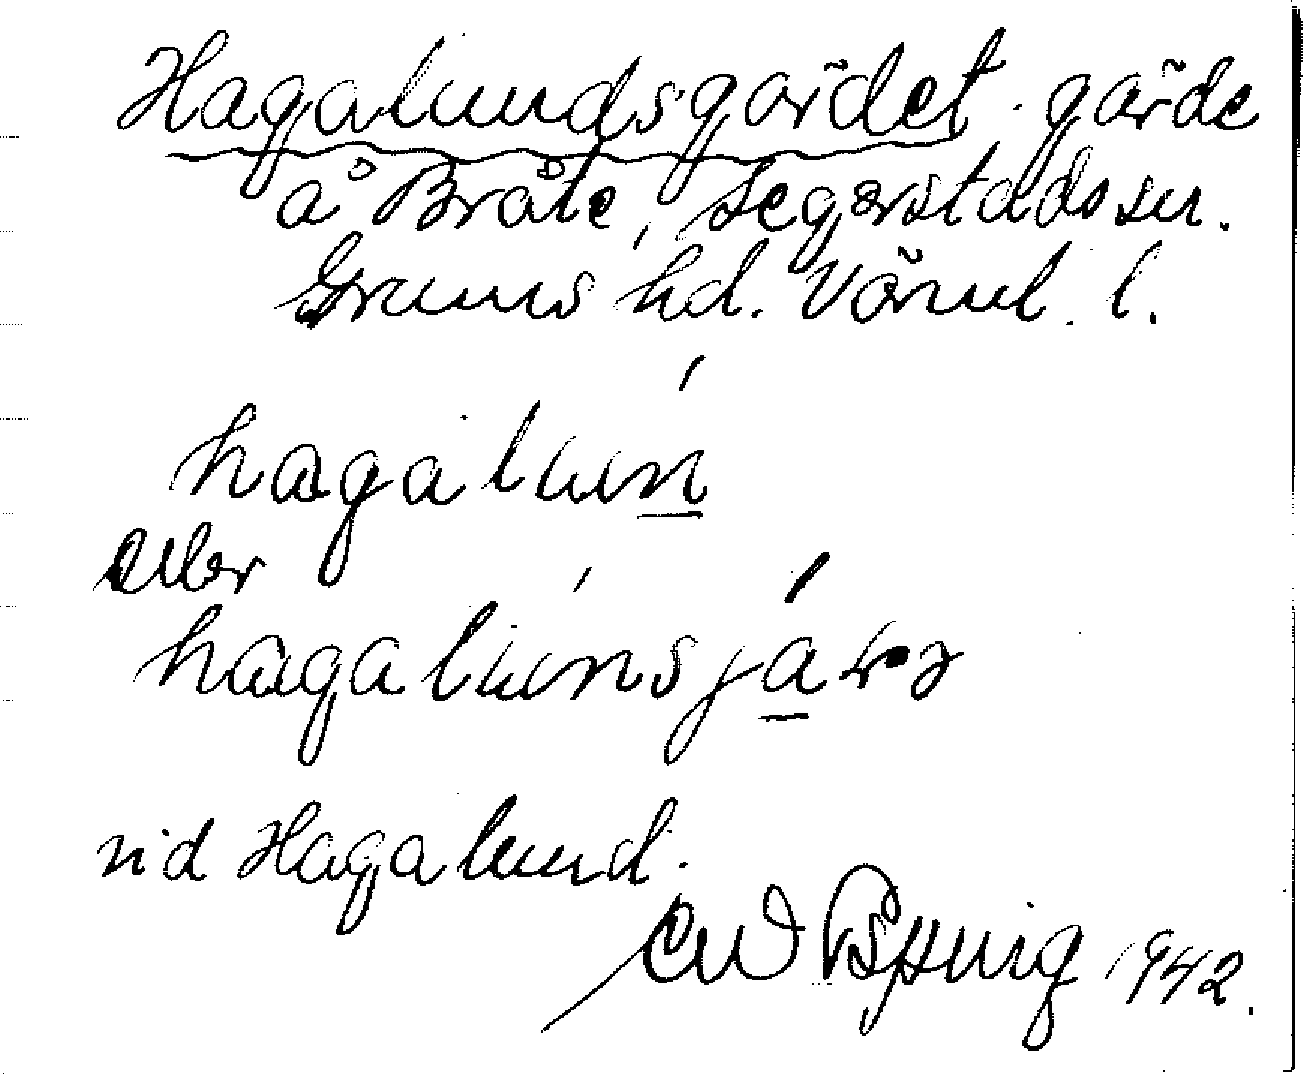 Hagalundsgärdet. gärde
å Bråte, Segerstads sn.
Grums hd. Värml. l.
hagalun
eller
hagalunsja
vid Hagalund.
1942.